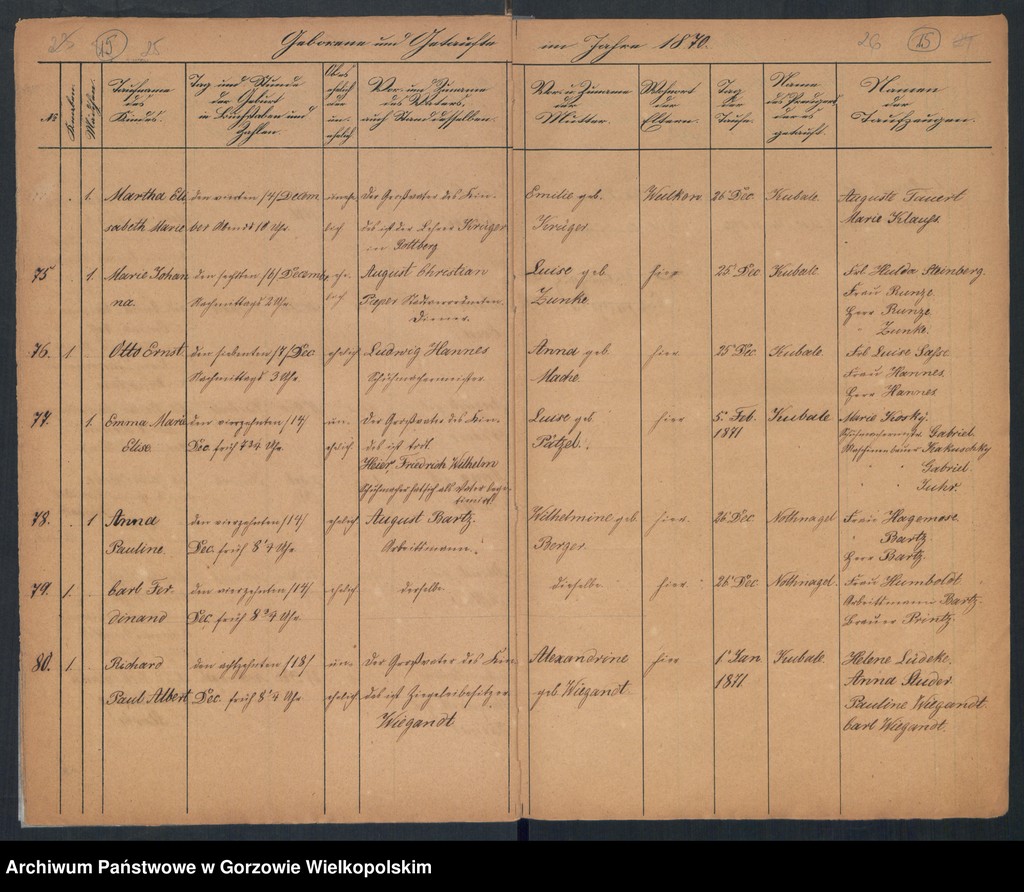 25 15 25
Geborene und Getaufte im Jahre 1870.
26 15
No.
Knaben.
Mädchen.
Taufname des Kindes.
Tag und Stunde der Geburt in Buchstaben und Zahlen.
Ob es ehelich oder unehelich
Vor- und Zuname des Vaters, auch Stand desselben.
Vor- u. Zuname der Mutter.
Wohnort der Eltern.
Tag der Taufe.
Name des Predigers der es getauft.
Namen der Taufzeugen.
1. Martha Eli den vierten /4/ Decem unehe Der Großvater des Kin Emilie geb. 26 Dec. Kubale. Auguste Tauert
sabeth Marie ber Abends 10 Uhr. lich des ist der Krüger Krüger. Marie Klauss
in Gottberg
75 1. Marie Johan den sechsten /6/ Decemb. ehe August Christian Luise geb. hier 25 Dec. Kubale. Frl. Hulda Steinberg.
na. Nachmittags 2 Uhr. lich Pieper Stadtverordneten Zunke. Frau Runze
Diener. Herr Runze
" Zunke.
76. 1 Otto Ernst den siebenten /7/ Dec. ehelich Ludwig Hannes Anna geb. hier 25 Dec. Kubale. Frl. Luise Sasse.
Nachmittags 3 Uhr. Schuhmachermeister. Mache. Frau Hannes.
Herr Hannes.
77. 1. Emma Marie den vierzehnten /14/ un- Der Großvater des Kin Luise geb. hier 5. Feb. Kubale. Marie Kosky.
Elise. Dec. früh Uhr. ehelich des ist Pätzel. 1871 Gabriel.
Heier, Friedrich Wilhelm Maschinenbauer Kakuschky
Schuhmacher hat sich als Vater " Gabriel
" Juhr.
78. 1 Anna den vierzehnten /14/ ehelich August Bartz. Wilhelmine geb. hier. 26 Dec. Nothnagel Frau Hagemose.
Pauline. Dec. früh 8¼ Uhr. Arbeitsmann. Berger. " Bartz
Herr Bartz.
79. 1. Carl Fer den vierzehnten /14/ ehelich derselbe dieselbe hier. 26 Dec. Nothnagel. Frau Humboldt
dinand Dec. früh 8¾ Uhr. Arbeitsmann Bartz.
Brauer Printz.
80. 1. Richard den achtzehnten /18/ un- Der Großvater des Kin Alexandrine hier 1. Jan Kubale. Helene Lüdeke.
Paul Albert Dec. früh 8¼ Uhr. ehelich des ist Ziegeleibesitzer geb. Wiegandt. 1871 Anna Studer
Wiegandt Pauline Wiegandt.
Carl Wiegandt.
Archiwum Państwowe w Gorzowie Wielkopolskim